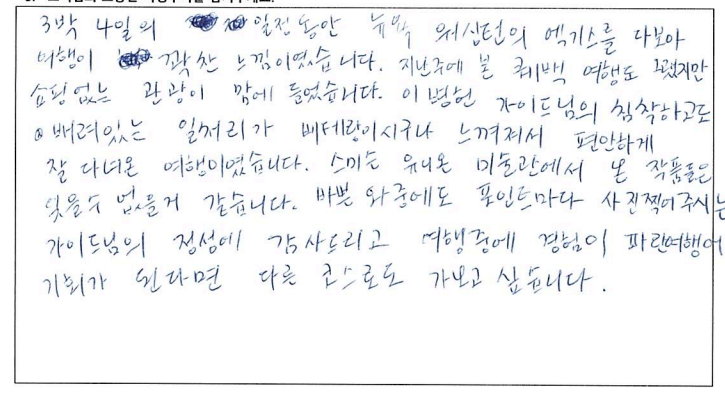 3박 4일의 일정동안 뉴욕 워싱턴의 엑기스를 다보아
여행이 꽉찬 느낌이였습니다. 지난주에 본 퀘백 여행도 그랬지만
쇼핑없는 관광이 맘에 들었습니다. 이병헌 가이드님의 침착하고도
배려있는 일처리가 베테랑이시구나 느껴져서 편안하게
잘 다녀온 여행이였습니다. 스미손 유니온 미술관에서 본 작품들은
잊을수 없을거 같습니다. 바쁜 와중에도 포인트마다 사진찍어주시는
가이드님의 정성에 감사드리고 여행중에 경험이 파란여행에
기회가 된다면 다른 코스로도 가보고 싶습니다.